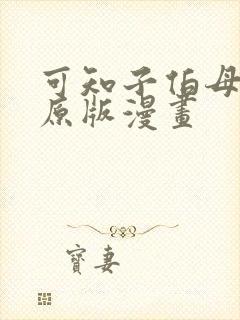 可知子伯母
原版漫畫
寶妻